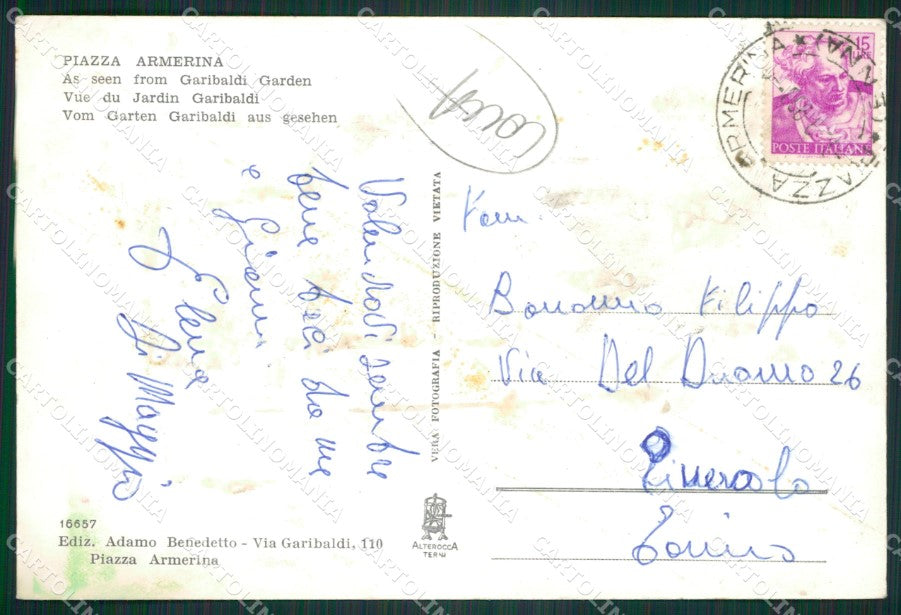 PIAZZA ARMERINA
As seen from Garibaldi Garden
Vue du Jardin Garibaldi
Vom Garten Garibaldi aus gesehen
15
POSTE ITALIANE
PIAZZA ARMERINA
sempre
bene baci da me
e Gianni
Elena
Di Maggio
VERA FOTOGRAFIA - RIPRODUZIONE VIETATA
Fam.
Bonanno Filippo
Via Del Duomo 26
Pinerolo
Torino
16657
Ediz. Adamo Benedetto - Via Garibaldi, 110
Piazza Armerina
ALTEROCCA
TERNI
CARTOLINOMANIA